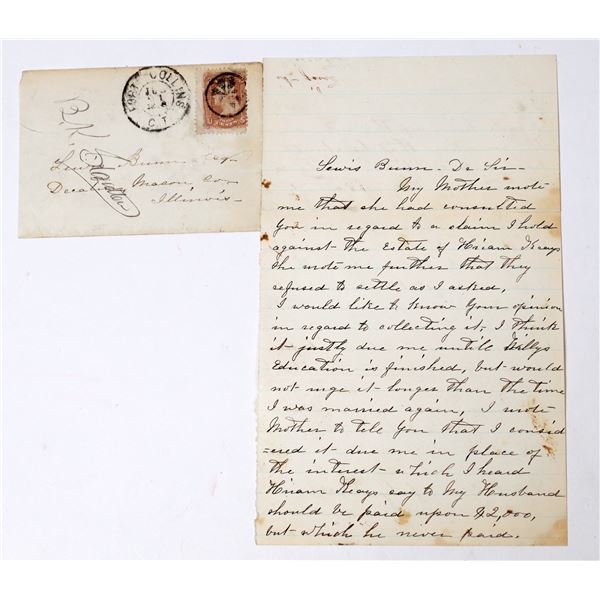 FORT COLLINS
C.T.
B.K.
Lewis Bunn Esq
Decatur Macon, Co,
Illinois-
Lewis Bunn - Dr Sir -
My Mother wrote
me that she had consulted
You in regard to a claim I hold
against the Estate of Hiram Keays
She wrote me further that they
refused to settle as I asked,
I would like to know Your opinion
in regard to collecting it, I think
it justly due me untill Willys
Education is finished, but would
not urge it longer than the time
I was married again, I wrote
Mother to tell You that I consid
=ered it due me in place of
the interest which I heard
Hiram Keays say to My Husband
should be paid upon $2,000,
but which he never paid.